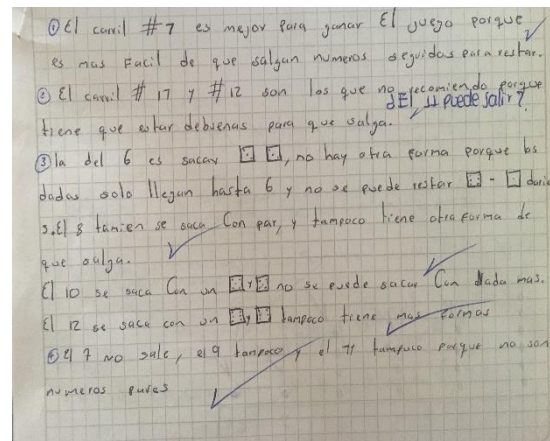 ① El carril #7 es mejor para ganar El juego porque
es mas Facil de que salgan numeros seguidos para restar.
② El carril #17 y #12 son los que no recomiendo porque
¿El 11 puede salir?
tiene que estar debuenas para que salga.
③ la del 6 es sacar ⚁ ⚁, no hay otra forma porque los
dadas solo llegan hasta 6 y no se puede restar daria
3. El 8 tamien se saca Con par, y tampoco tiene otra forma de
que salga.
El 10 se saca Con un y no se puede sacar Con nada mas.
El 12 se saca con un y tampoco tiene mas formas
④ El 7 no sale, el 9 tampoco y el 11 tampoco porque no son
numeros pares